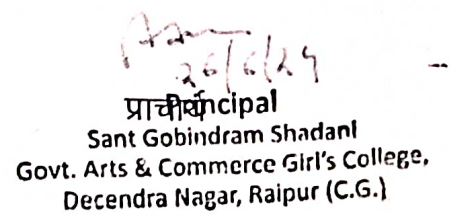 26/6/24
प्राचार्य Principal
Sant Gobindram Shadani
Govt. Arts & Commerce Girl's College,
Decendra Nagar, Raipur (C.G.)